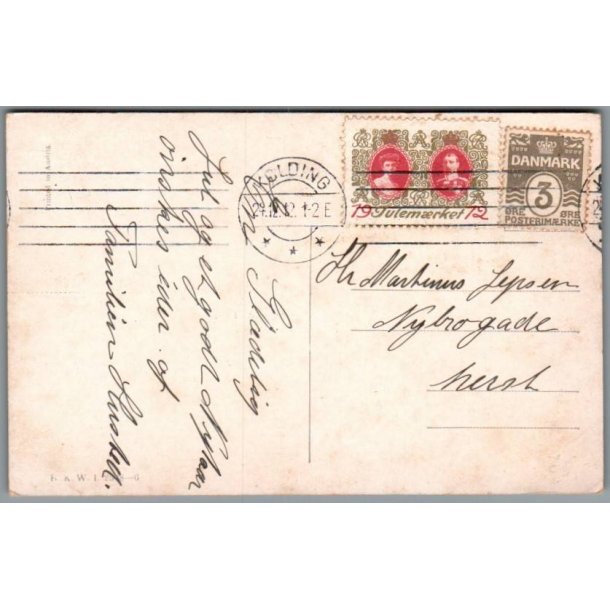 En Glædelig
Jul og et godt Nytaar
ønskes eder af
Familien
KOLDING
24.12.12. 1-2 E
19 Julemærket 12
DANMARK
3
ØRE ØRE
POSTFRIMÆRKE
Hr Martinus Jepsen
Nybrogade
herst
Printed in Austria